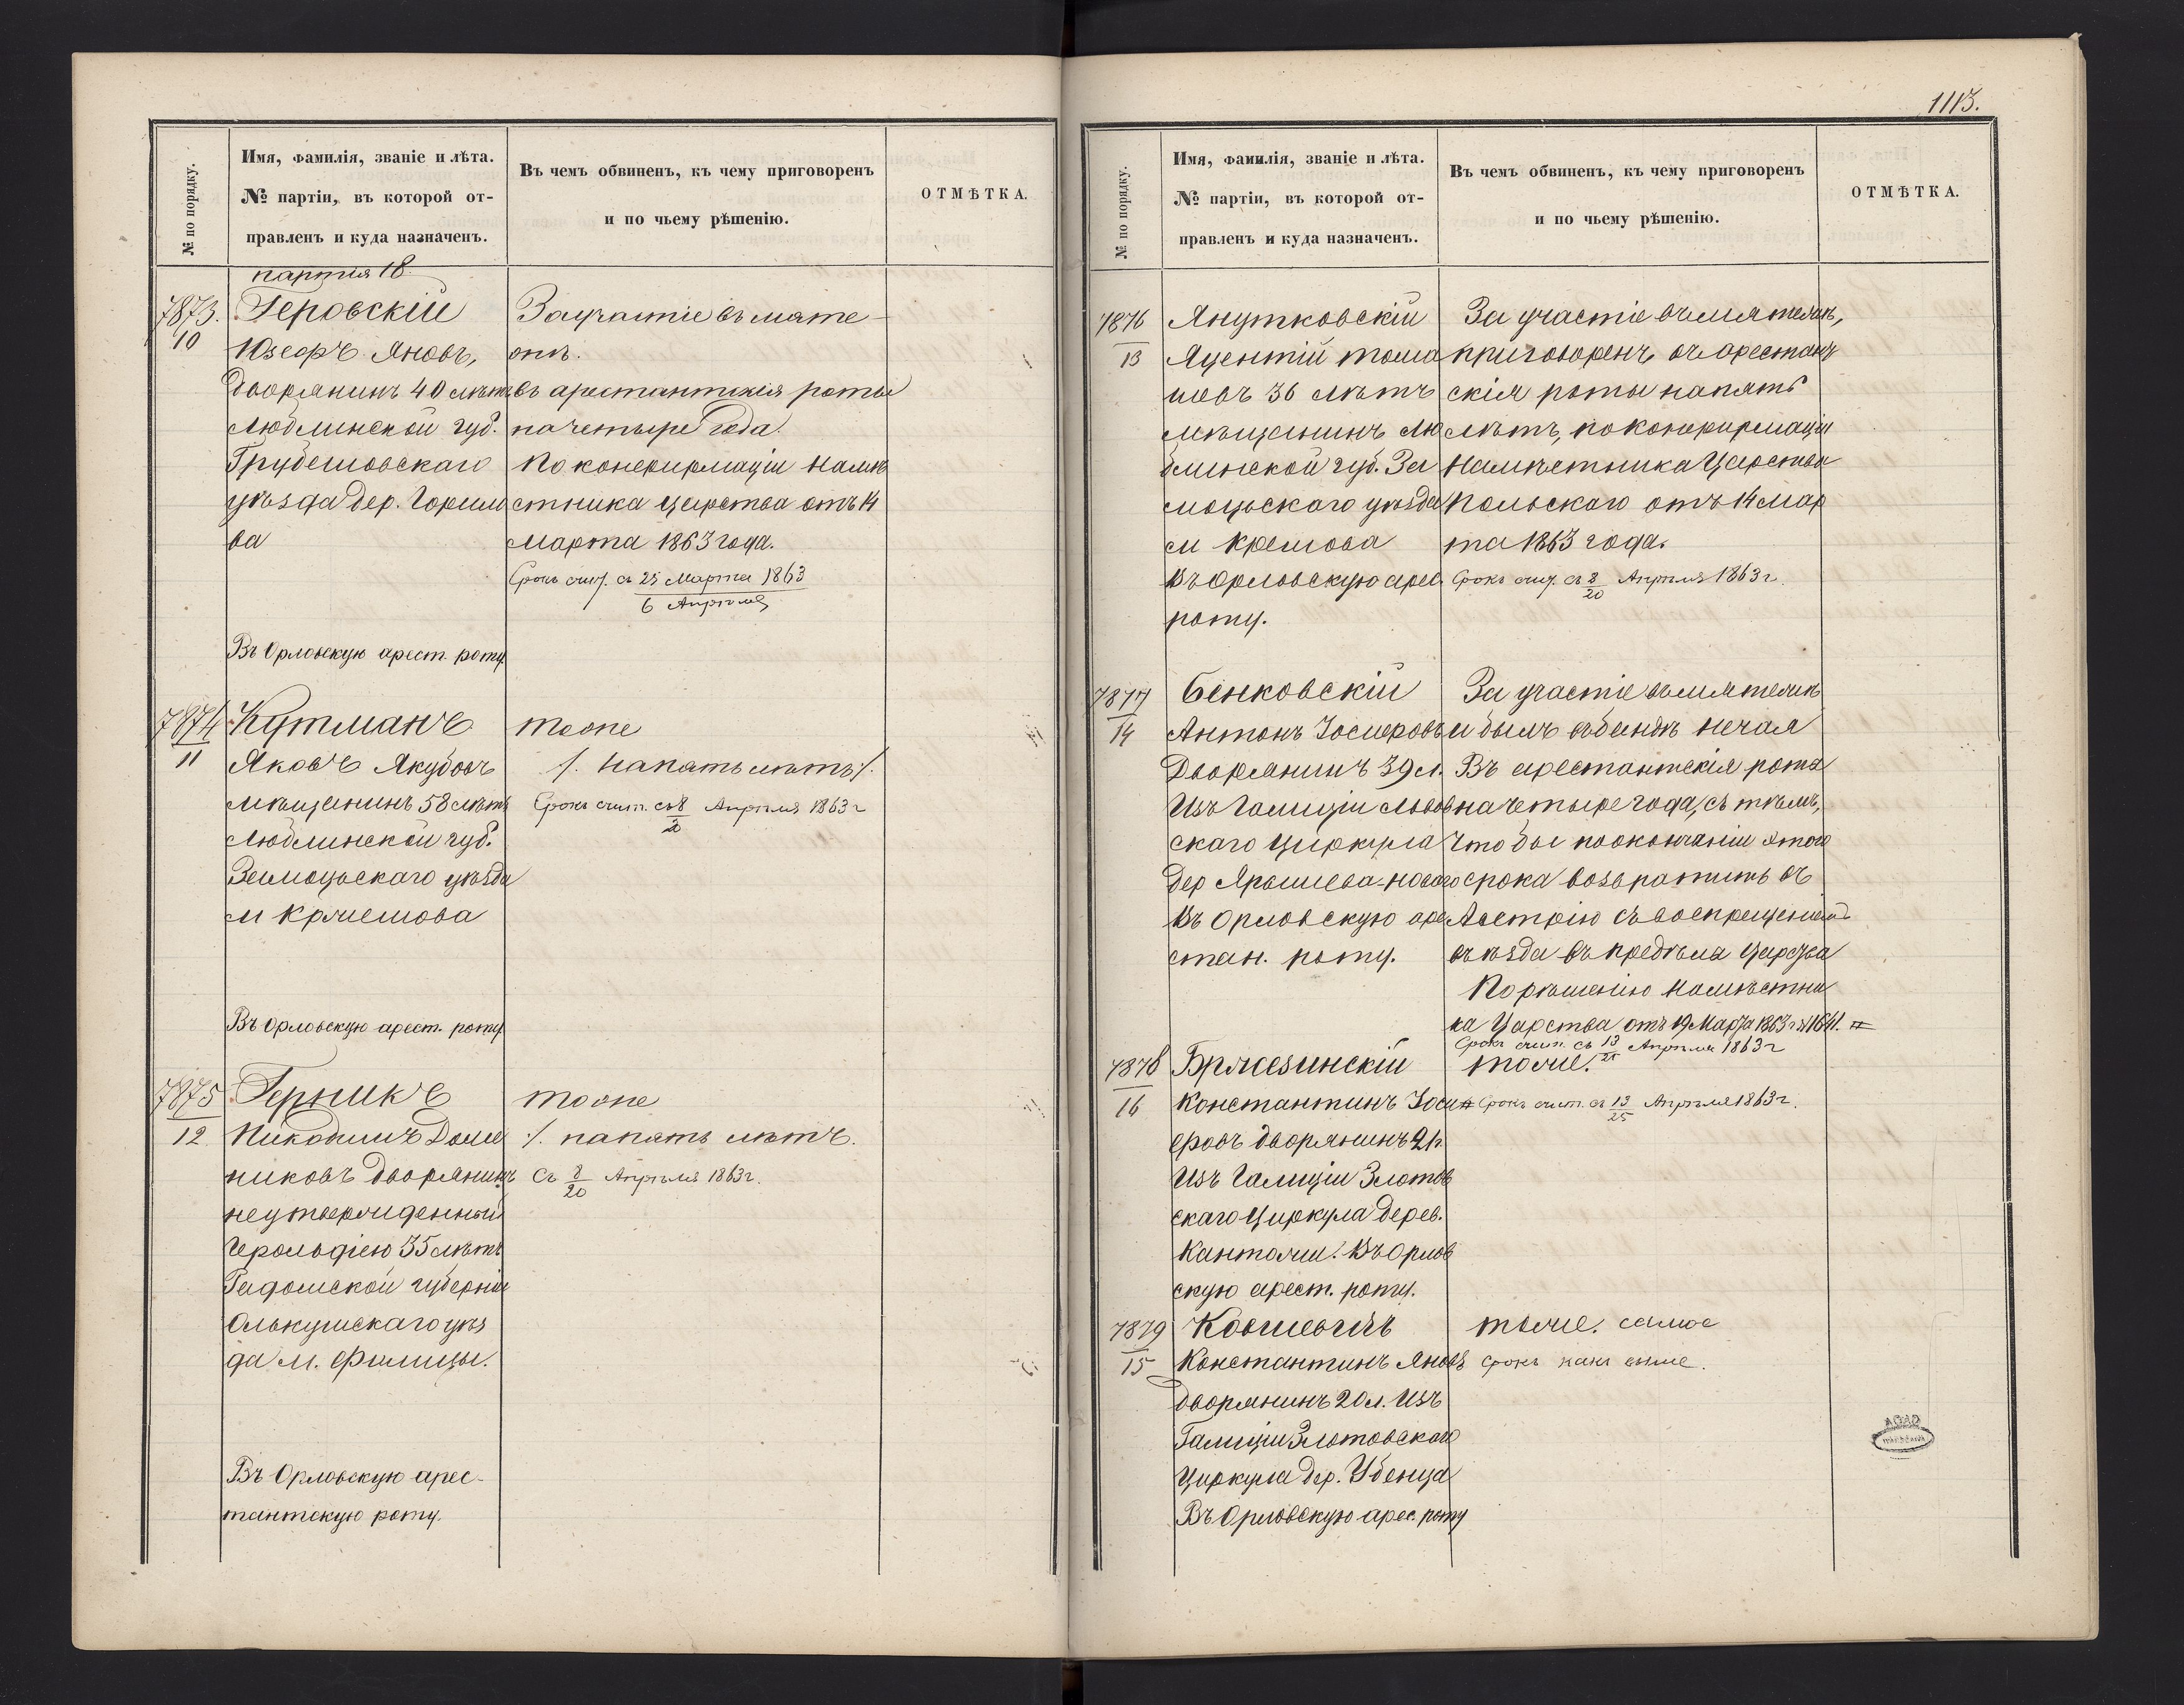 1113.
№ по порядку.
Имя, фамилія, званіе и лѣта.
№ партіи, въ которой от-
правленъ и куда назначенъ.
Въ чемъ обвиненъ, къ чему приговоренъ
и по чьему рѣшенію.
ОТМѢТКА.
партия 18
7873.
10
Геровскій
Юзефъ Яновъ,
дворянинъ 40 лѣтъ
Люблинской губ.
Грубешовскаго
уѣзда дер.
ва
Въ Орловскую арест. роту
За участіе въ мяте-
жѣ.
въ арестантскія роты
на четыре года.
По конфирмаціи Намѣ
стника Царства отъ 14
Марта 1863 года.
Срокъ счит. съ 25 Марта 1863
6 Апрѣля
7874
11
Кутманъ
Яковъ Якубовъ
мѣщанинъ 58 лѣтъ
Люблинской губ.
Замоцьскаго уѣзда
м Кржешова
Въ Орловскую арест. роту
тоже
/. на пять лѣтъ /.
Срокъ счит. съ 8/20 Апрѣля 1863 г
7875
12
Герникъ
Никодимъ Доми
никовъ дворянинъ
неутвержденный
Герольдіею 35 лѣтъ
Радомской губерніи
Олькушскаго уѣз
да м. Пилицы.
Въ Орловскую арес-
тантскую роту.
тоже
/. на пять лѣтъ.
Съ 8/20 Апрѣля 1863 г.
№ по порядку.
Имя, фамилія, званіе и лѣта.
№ партіи, въ которой от-
правленъ и куда назначенъ.
Въ чемъ обвиненъ, къ чему приговоренъ
и по чьему рѣшенію.
ОТМѢТКА.
7876
13
Янутковскій
Яцентій Тома
шовъ 36 лѣтъ
мѣщанинъ Лю
блинской губ. За
моцьскаго уѣзда
м Крешова
Въ Орловскую арес.
роту.
За участіе въ мятежѣ,
приговоренъ въ арестант
скія роты на пять
лѣтъ, по конфирмаціи
Намѣстника Царства
Польскаго отъ 14 Мар
та 1863 года.
Срокъ счит. съ 8/20 Апрѣля 1863 г.
7877
14
Бенковскій
Антонъ Іосифовъ
Дворянинъ 39 л.
Изъ Галиціи Львов
скаго Циркула
дер Ярышева-Новаго
Въ Орловскую аре
стан. роту.
За участіе въ мятежѣ
и былъ въ бандѣ Нечая
Въ арестантскія роты
на четыре года, съ тѣмъ,
что бы по окончаніи этого
срока возвратить въ
Австрію съ воспрещеніемъ
въѣзда въ предѣлы Царства
По рѣшенію Намѣстни
ка Царства отъ 19 Марта 1863 г. № 1641.
Срокъ счит. съ 13/25 Апрѣля 1863 г
7878
16
Бржезинскій
Константинъ Іоси
фовъ дворянинъ 21 л
Изъ Галиціи Злотов
скаго Циркула дерев.
Въ Орлов
скую арест. роту.
тоже.
Срокъ счит. съ 13/25 Апрѣля 1863 г.
7879
15
Константинъ Яновъ
дворянинъ 20 л. Изъ
Галиціи Злотовскаго
Циркула дер.
Въ Орловскую арес. роту
тоже. самое
Срокъ какъ выше.
AGAD
WARSZAWA